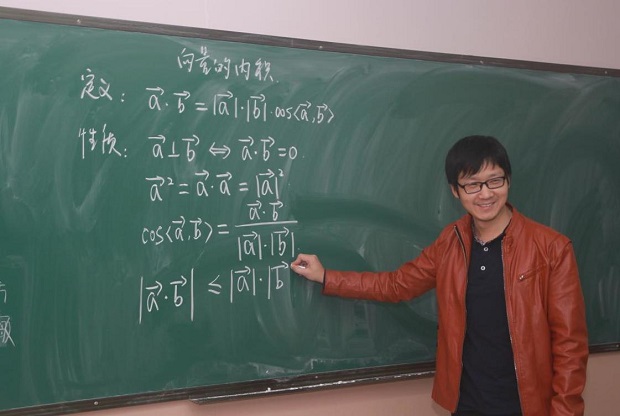 向量的内积
定义: a⃗·b⃗=|a⃗|·|b⃗|·cos⟨a⃗,b⃗⟩
性质: a⃗⊥b⃗⇔a⃗·b⃗=0
a⃗²=a⃗·a⃗=|a⃗|²
cos⟨a⃗,b⃗⟩=a⃗·b⃗/|a⃗|·|b⃗|
|a⃗·b⃗|≤|a⃗|·|b⃗